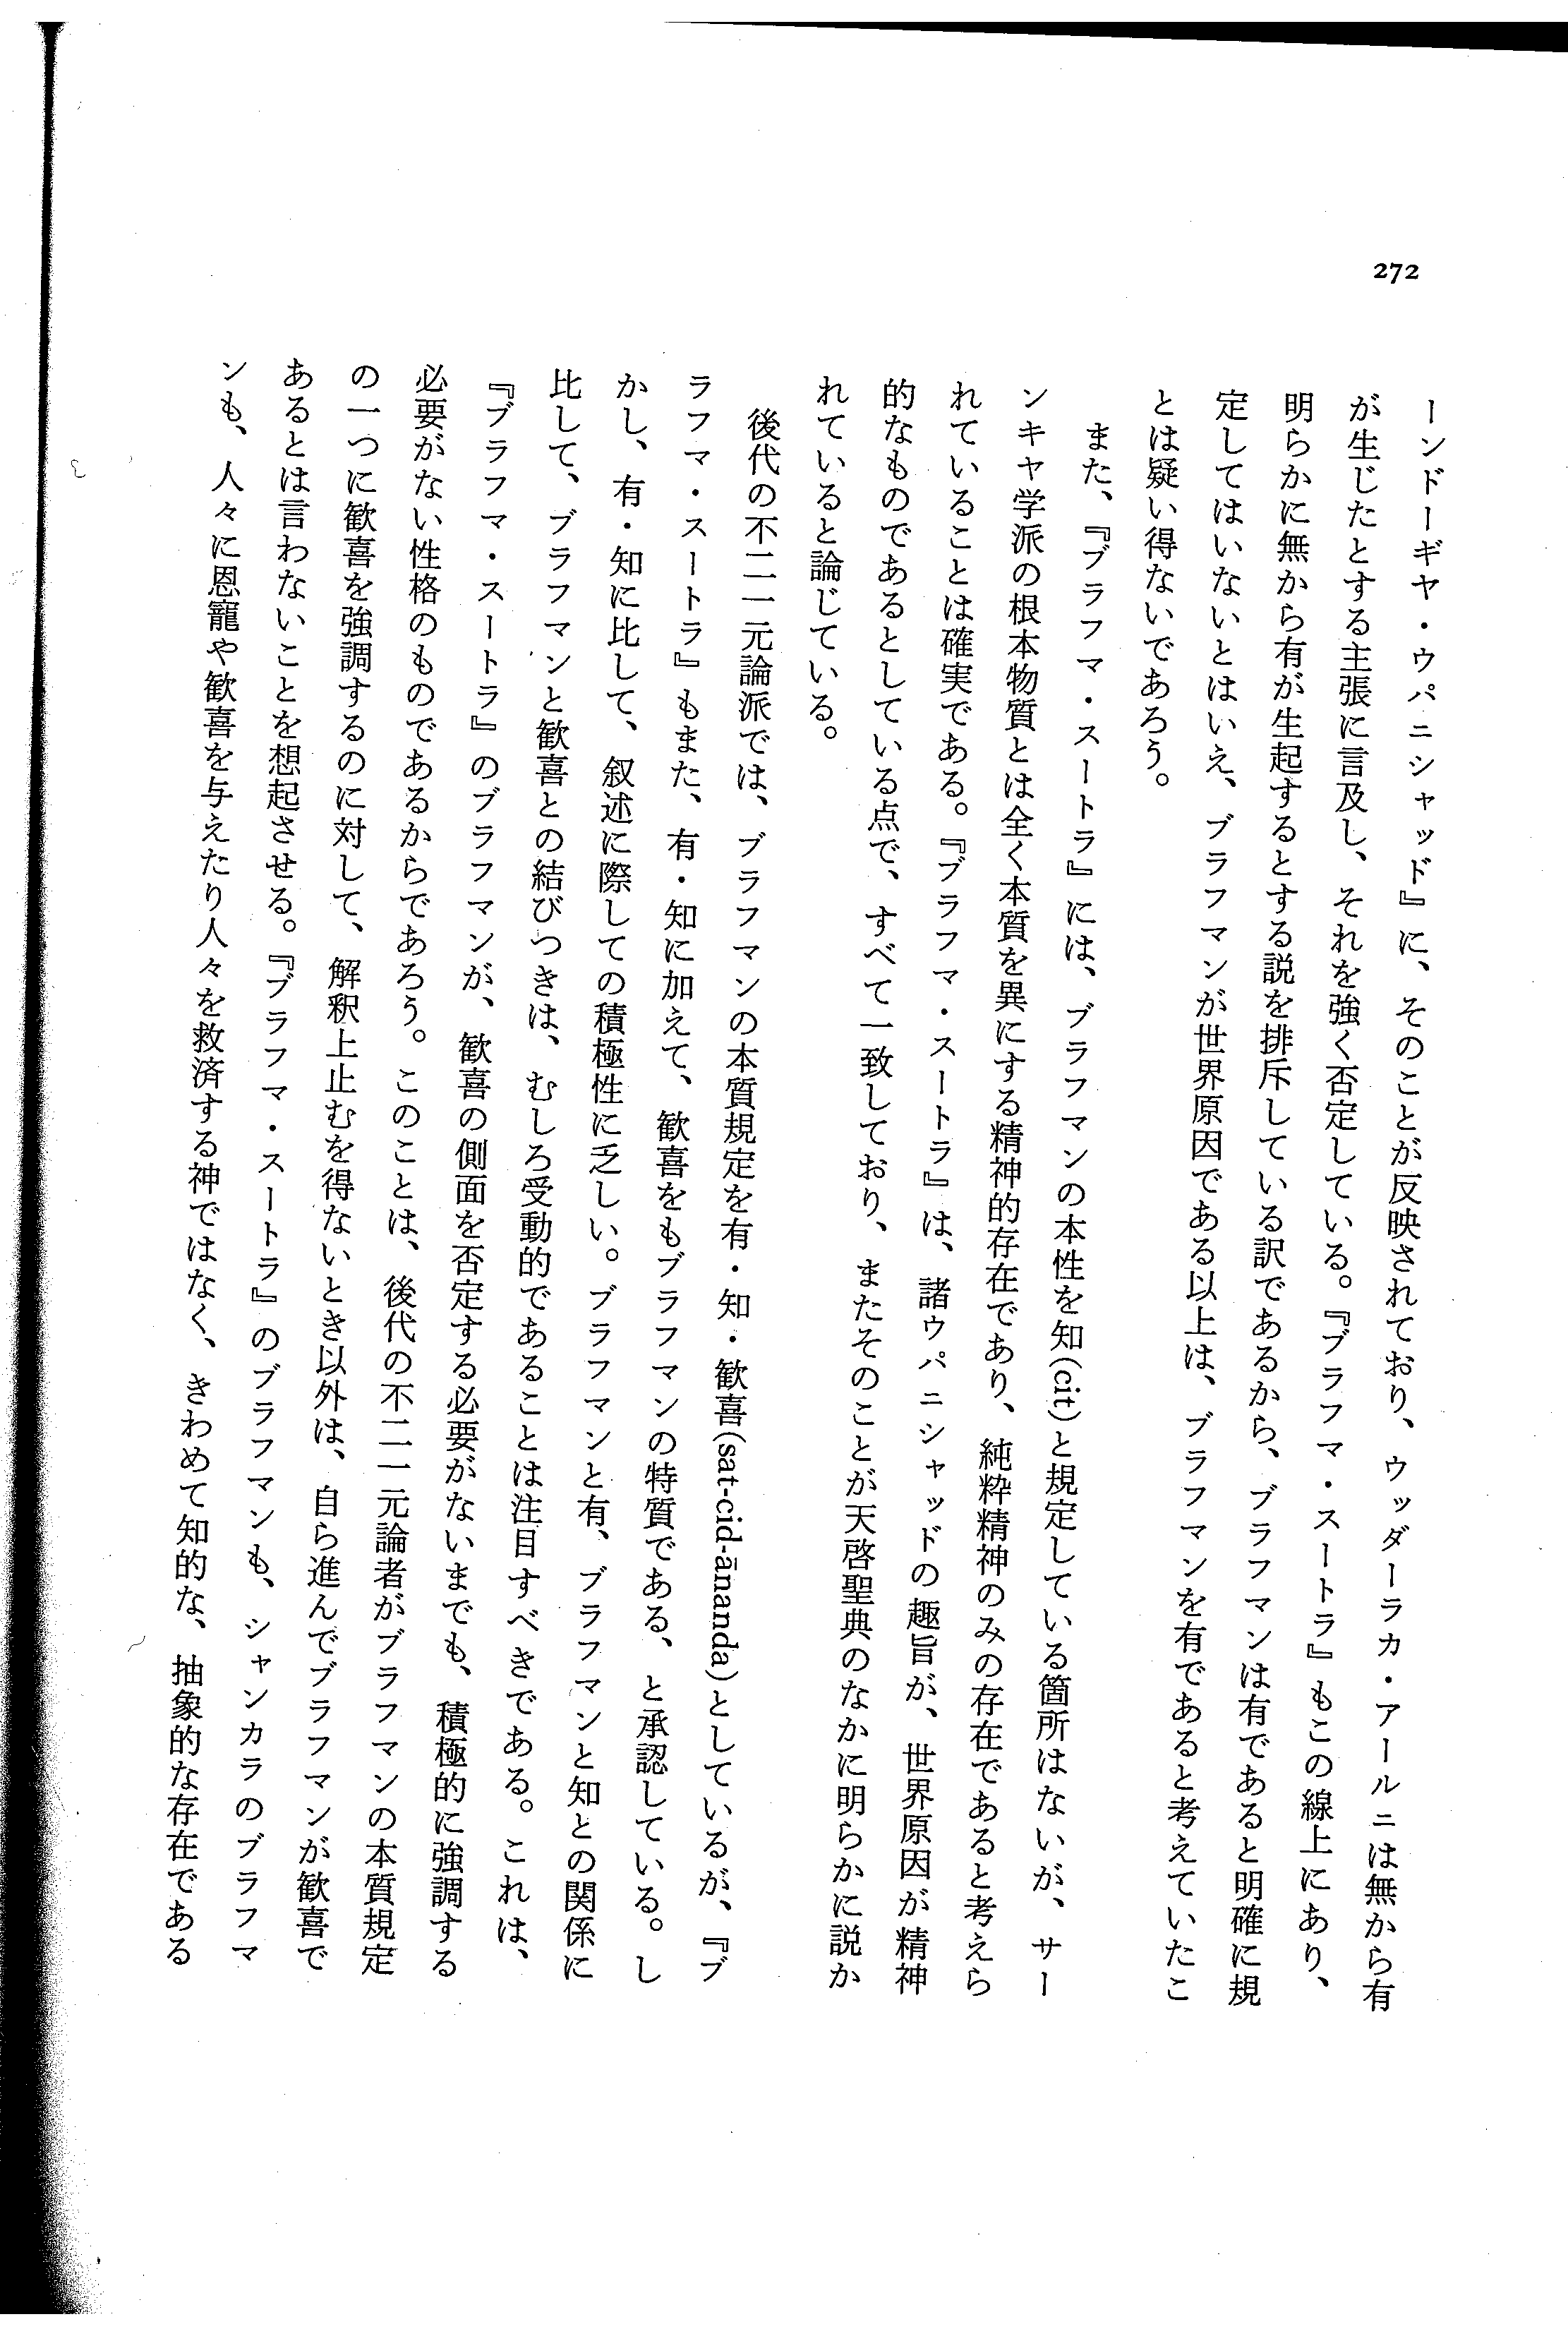 272
ーンドーギヤ・ウパニシャッド』に、そのことが反映されており、ウッダーラカ・アールニは無から有
が生じたとする主張に言及し、それを強く否定している。『ブラフマ・スートラ』もこの線上にあり、
明らかに無から有が生起するとする説を排斥している訳であるから、ブラフマンは有であると明確に規
定してはいないとはいえ、ブラフマンが世界原因である以上は、ブラフマンを有であると考えていたこ
とは疑い得ないであろう。
また、『ブラフマ・スートラ』には、ブラフマンの本性を知(cit)と規定している箇所はないが、サー
ンキヤ学派の根本物質とは全く本質を異にする精神的存在であり、純粋精神のみの存在であると考えら
れていることは確実である。『ブラフマ・スートラ』は、諸ウパニシャッドの趣旨が、世界原因が精神
的なものであるとしている点で、すべて一致しており、またそのことが天啓聖典のなかに明らかに説か
れていると論じている。
後代の不二一元論派では、ブラフマンの本質規定を有・知・歓喜(sat-cid-ānanda)としているが、『ブ
ラフマ・スートラ』もまた、有・知に加えて、歓喜をもブラフマンの特質である、と承認している。し
かし、有・知に比して、叙述に際しての積極性に乏しい。ブラフマンと有、ブラフマンと知との関係に
比して、ブラフマンと歓喜との結びつきは、むしろ受動的であることは注目すべきである。これは、
『ブラフマ・スートラ』のブラフマンが、歓喜の側面を否定する必要がないまでも、積極的に強調する
必要がない性格のものであるからであろう。このことは、後代の不二一元論者がブラフマンの本質規定
の一つに歓喜を強調するのに対して、解釈上止むを得ないとき以外は、自ら進んでブラフマンが歓喜で
あるとは言わないことを想起させる。『ブラフマ・スートラ』のブラフマンも、シャンカラのブラフマ
ンも、人々に恩寵や歓喜を与えたり人々を救済する神ではなく、きわめて知的な、抽象的な存在である